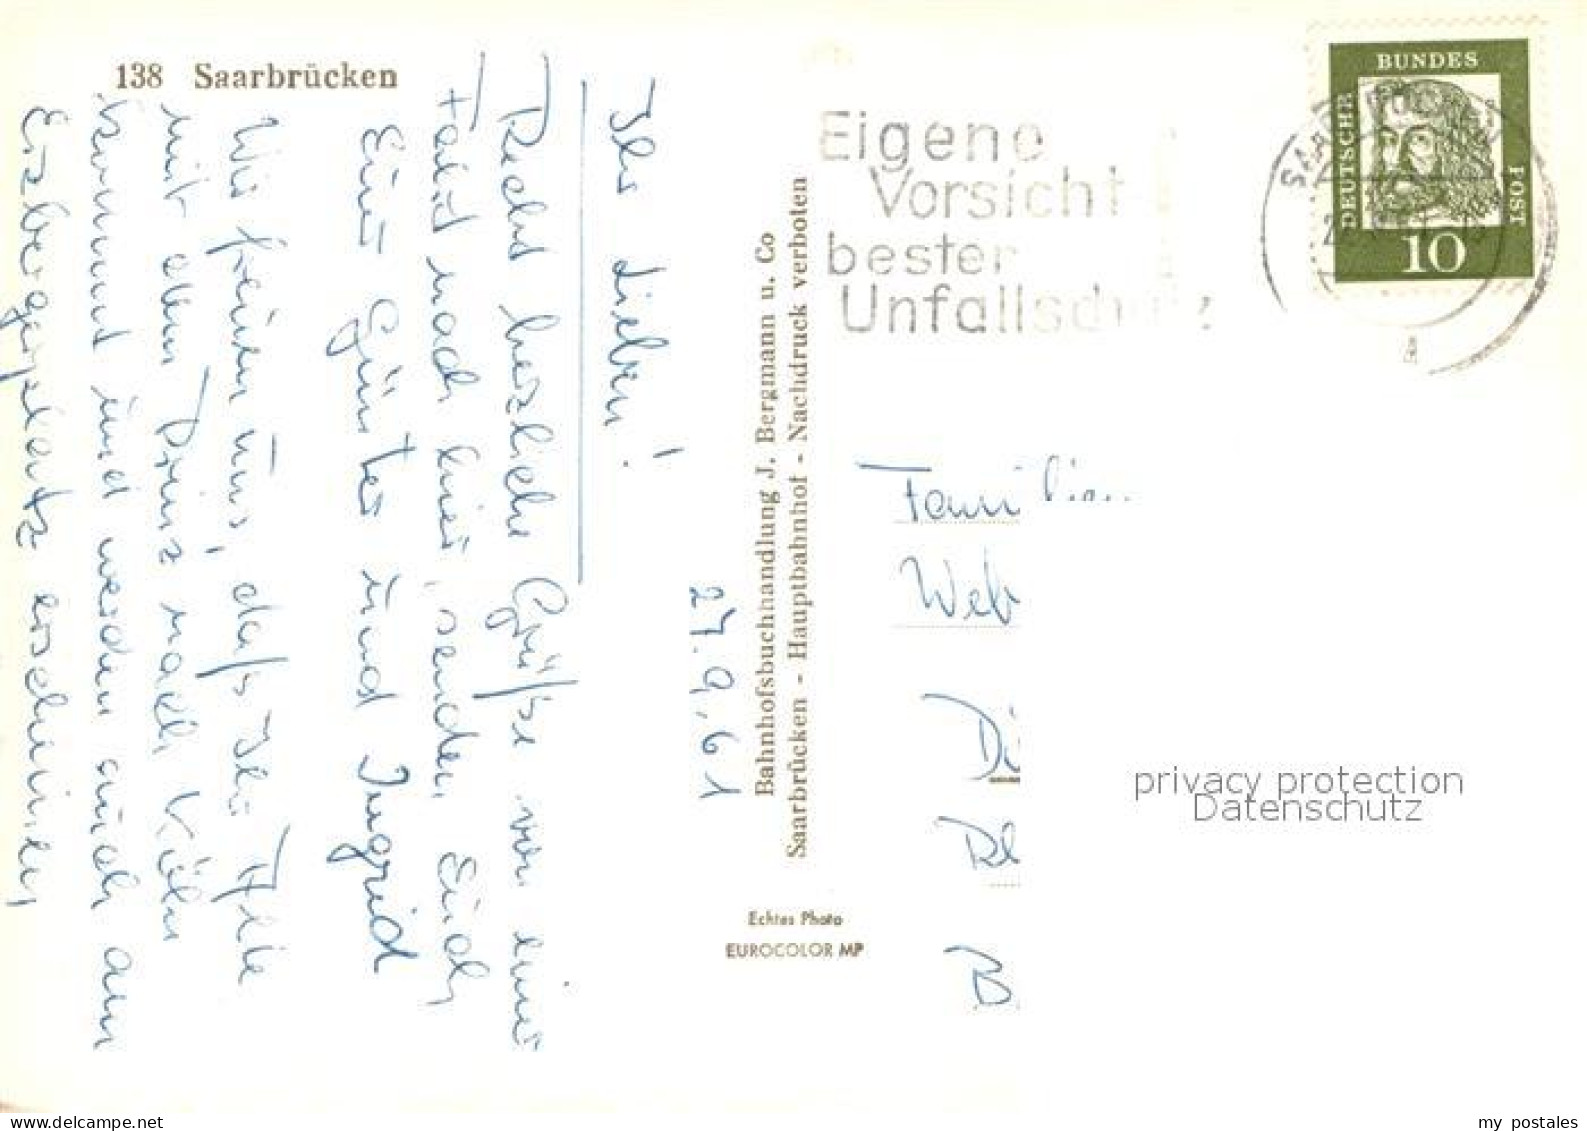 138 Saarbrücken
27.9.61
Ihr Lieben!
Recht herzliche Grüße von einer
Fahrt nach hier, senden Euch
Eure Günter und Ingrid
Wir freuen uns, daß Ihr Alle
mit dem Prinz nach Köln
kommt und werden auch am
Erzbergerplatz erscheinen
Bahnhofsbuchhandlung J. Bergmann u. Co
Saarbrücken - Hauptbahnhof - Nachdruck verboten
Echtes Photo
EUROCOLOR MP
Eigene
Vorsicht
bester
Unfallschutz
DEUTSCHE BUNDESPOST
10
Familien
Web
privacy protection
Datenschutz
my postales